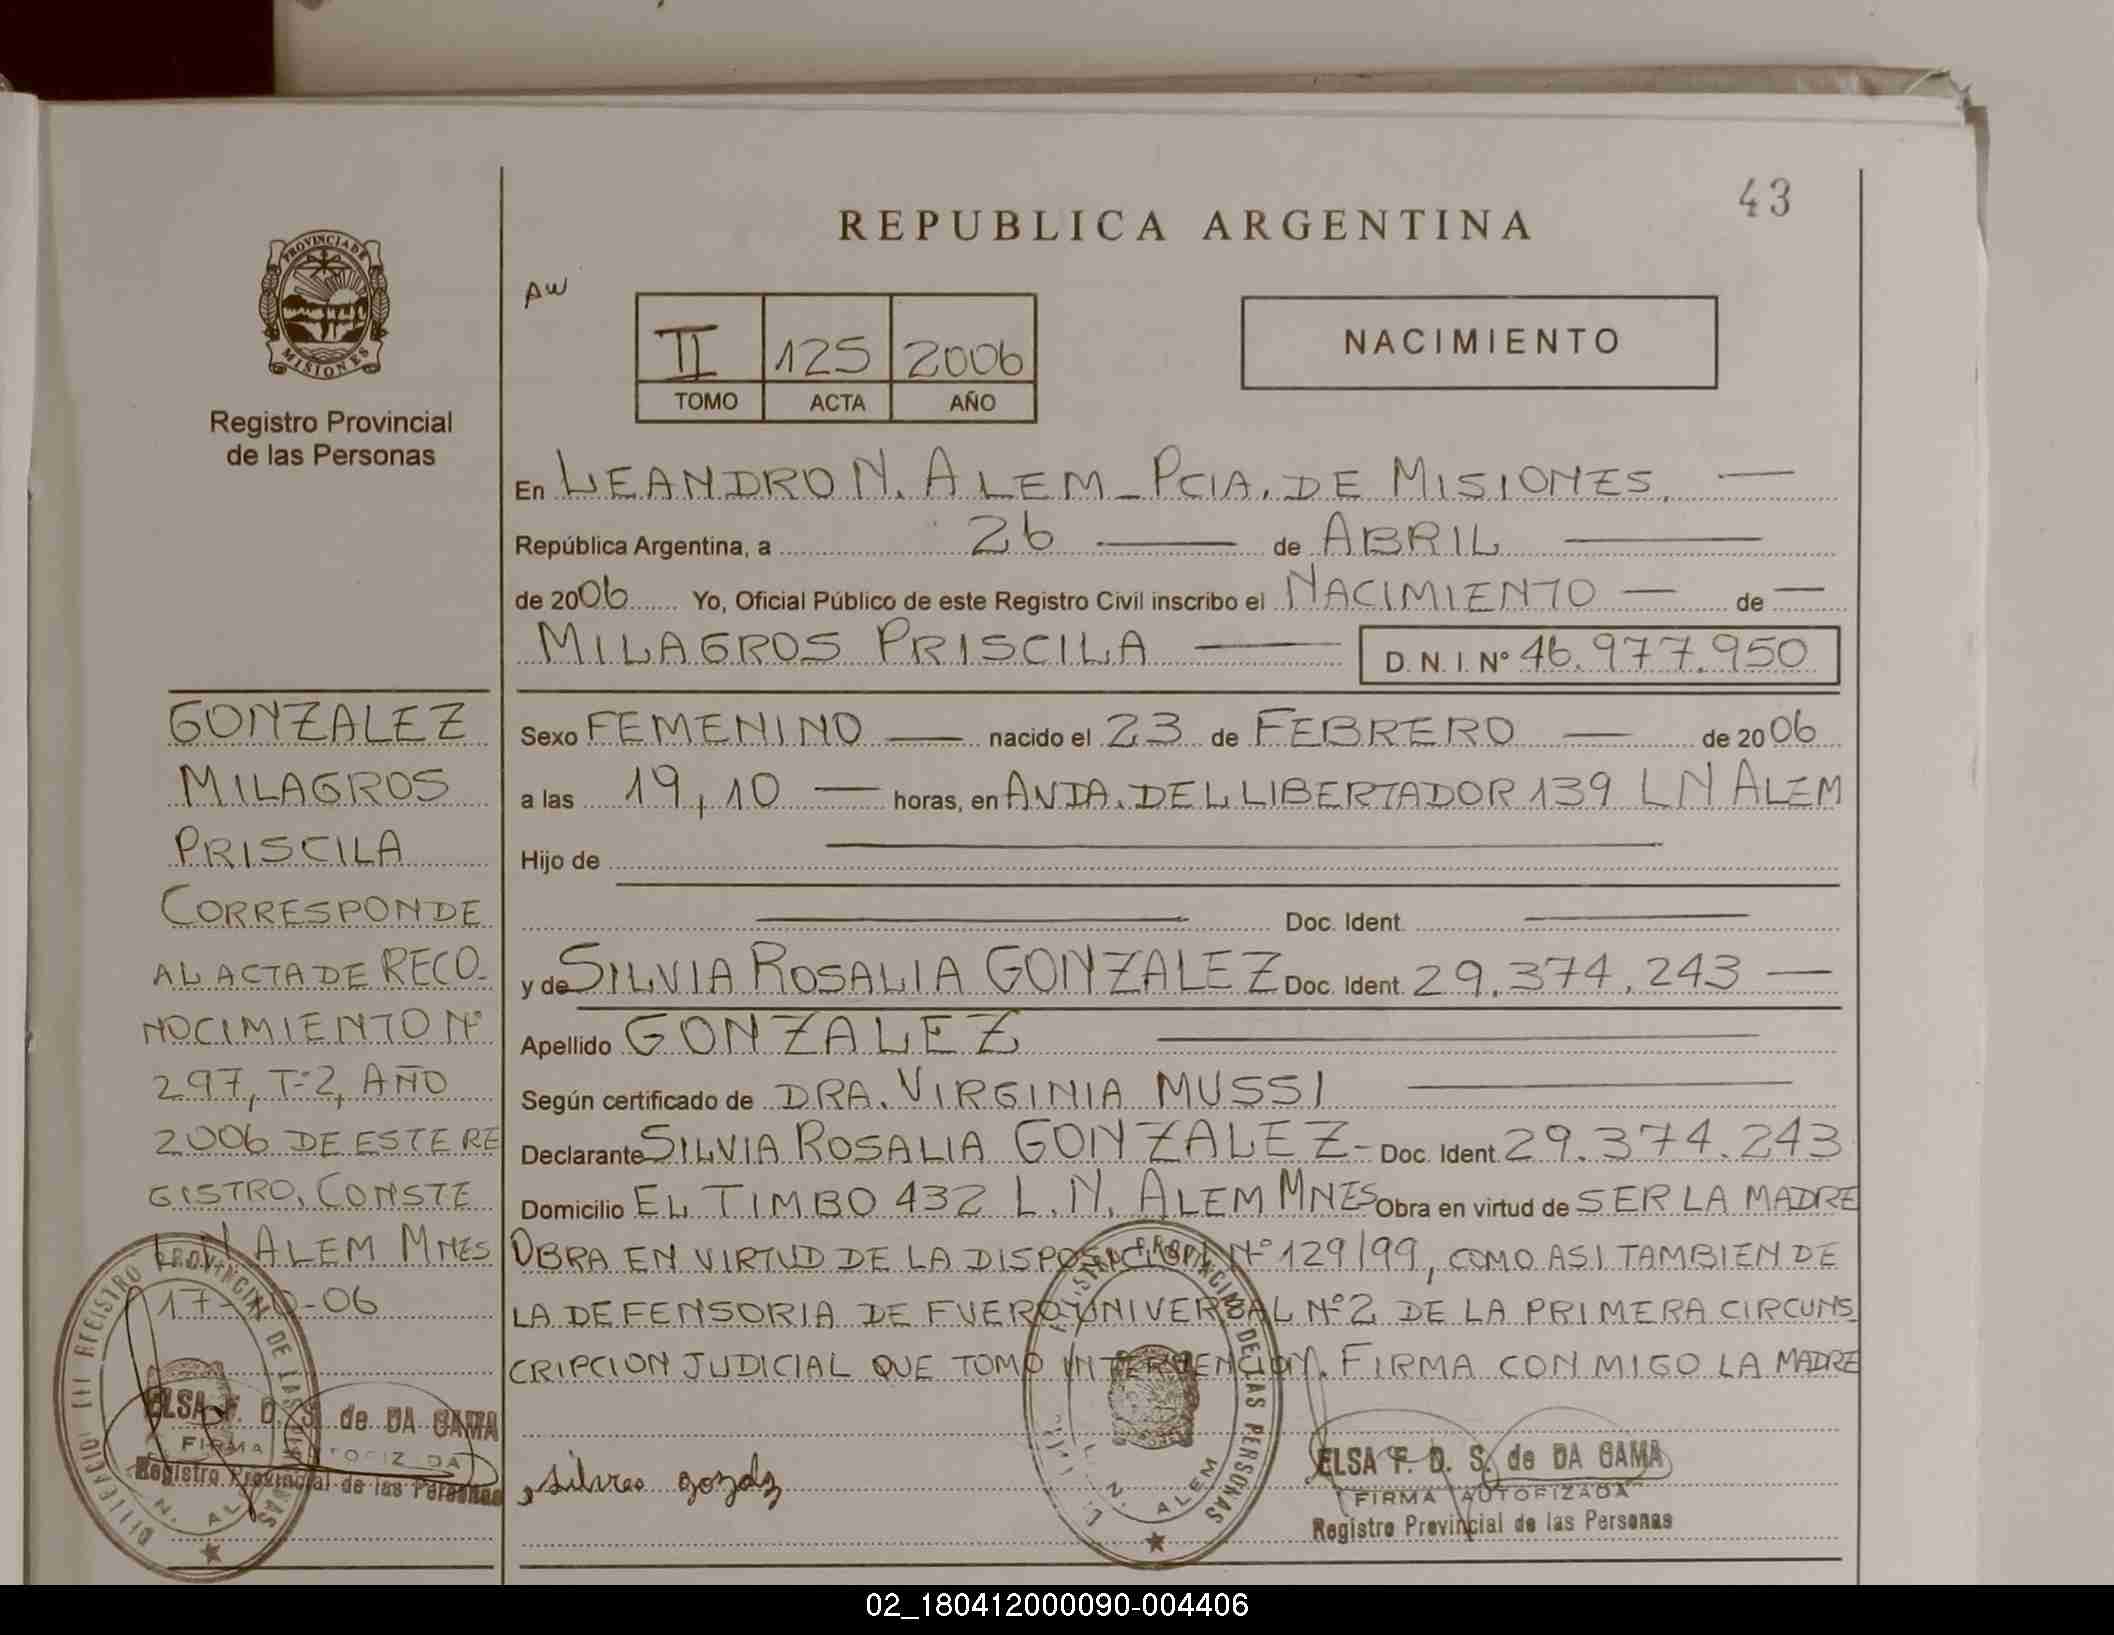 43
REPUBLICA ARGENTINA
PROVINCIA DE
MISIONES
Registro Provincial
de las Personas
AW
II 125 2006
TOMO ACTA AÑO
NACIMIENTO
En LEANDRO N. ALEM - PCIA. DE MISIONES.
República Argentina, a 26 de ABRIL
de 2006 Yo, Oficial Público de este Registro Civil inscribo el NACIMIENTO de
MILAGROS PRISCILA D.N.I. Nº 46.977.950
Sexo FEMENINO nacido el 23 de FEBRERO de 2006
a las 19,10 horas, en AVDA. DEL LIBERTADOR 139 LN ALEM
Hijo de
Doc. Ident.
y de SILVIA ROSALIA GONZALEZ Doc. Ident. 29.374.243
Apellido GONZALEZ
Según certificado de DRA. VIRGINIA MUSSI
Declarante SILVIA ROSALIA GONZALEZ - Doc. Ident. 29.374.243
Domicilio EL TIMBO 432 L.N. ALEM MNES Obra en virtud de SER LA MADRE
OBRA EN VIRTUD DE LA DISPOSICION Nº 129/99, COMO ASI TAMBIEN DE
LA DEFENSORIA DE FUERO UNIVERSAL Nº 2 DE LA PRIMERA CIRCUNS
CRIPCION JUDICIAL QUE TOMO INTERVENCION. FIRMA CON MIGO LA MADRE
GONZALEZ
MILAGROS
PRISCILA
CORRESPONDE
AL ACTA DE RECO-
NOCIMIENTO Nº
297, T-2, AÑO
2006 DE ESTE RE
GISTRO, CONSTE
L.N ALEM MNES
17- -06
ELSA F. D. S. de DA GAMA
FIRMA AUTORIZADA
Registro Provincial de las Personas
REGISTRO PROVINCIAL DE LAS PERSONAS
L. N. ALEM
ELSA F. D. S. de DA GAMA
FIRMA AUTORIZADA
Registro Provincial de las Personas
02_180412000090-004406